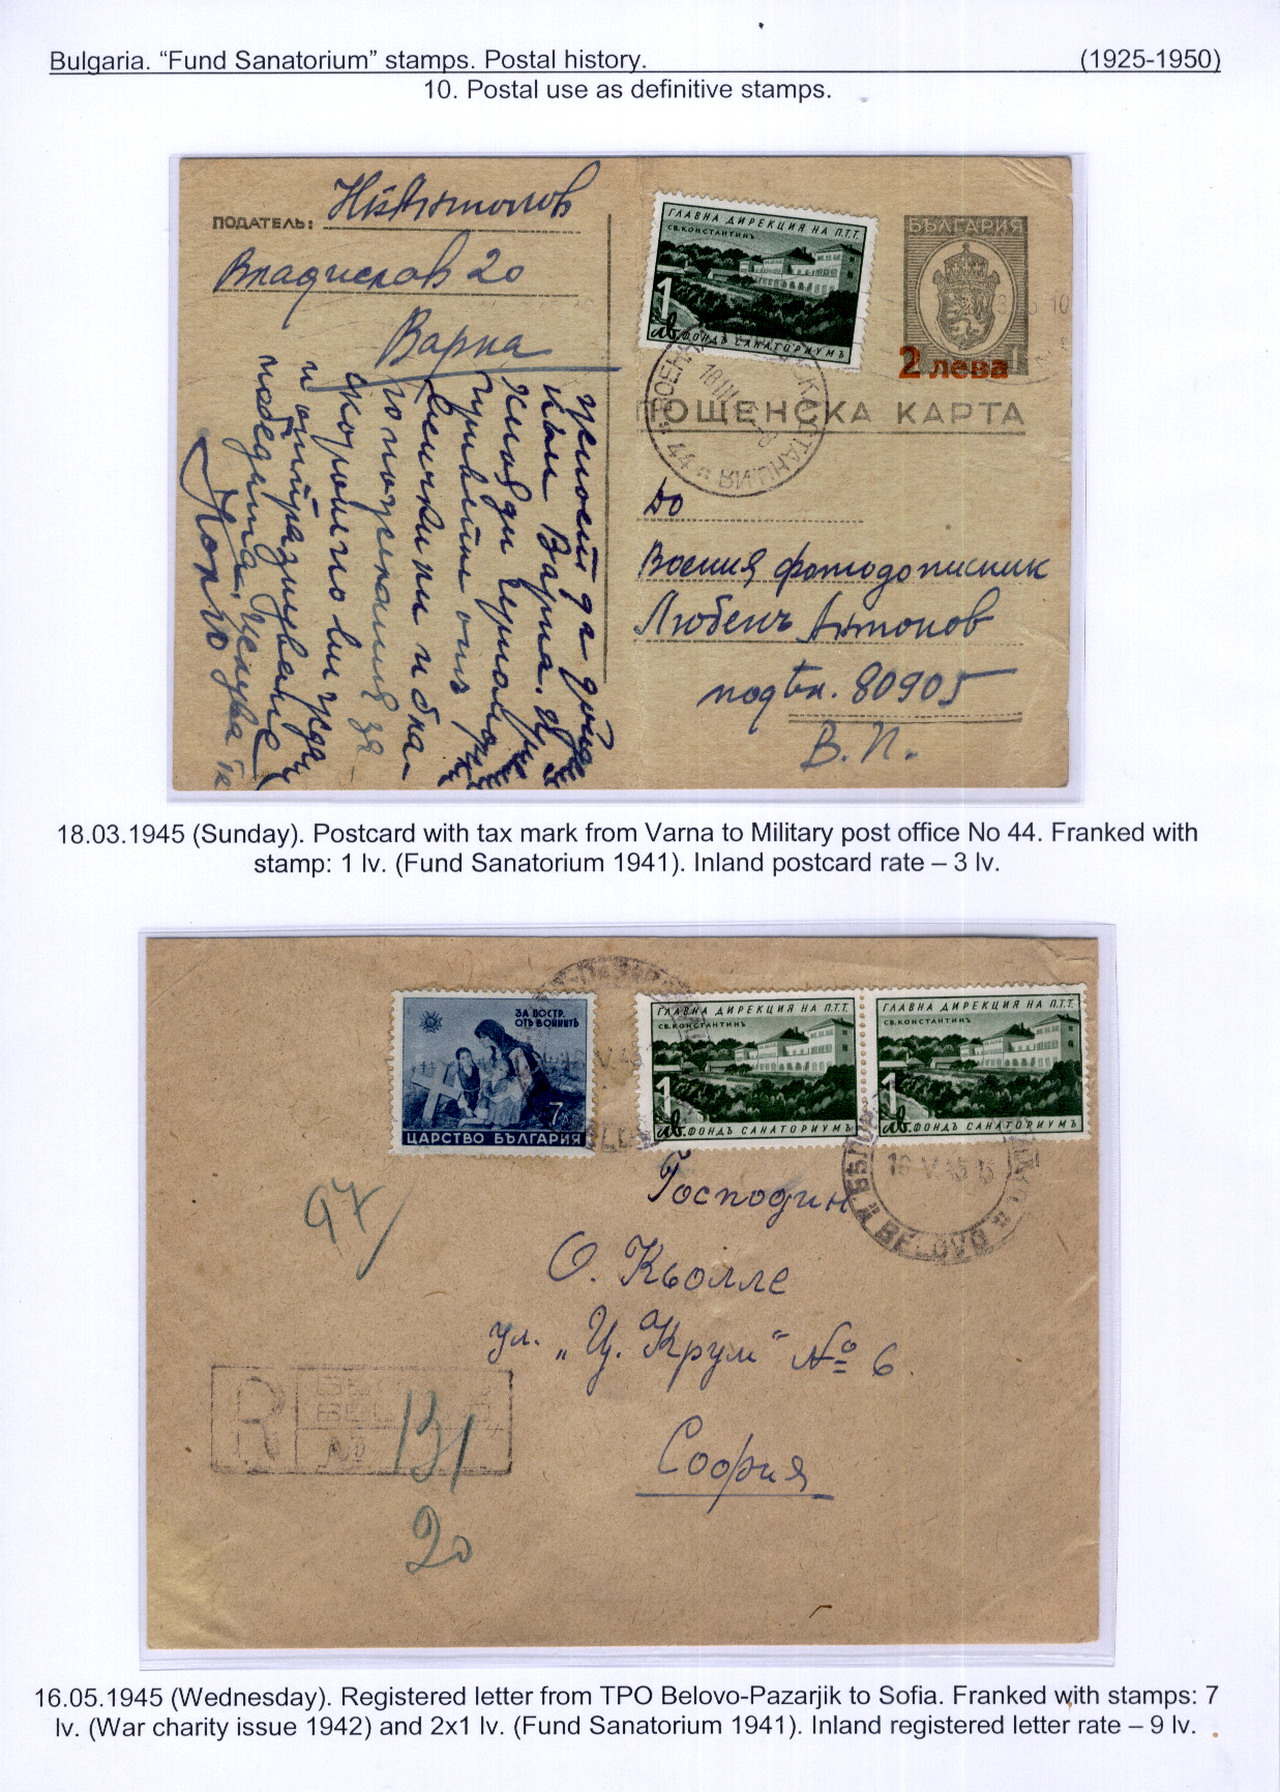 Bulgaria. “Fund Sanatorium” stamps. Postal history. (1925-1950)
10. Postal use as definitive stamps.
ПОДАТЕЛЬ:
Владислав 20
Варна
ГЛАВНА ДИРЕКЦИЯ НА П.Т.Т.
СВ.КОНСТАНТИНЪ
1
лв. ФОНДЪ САНАТОРИУМЪ
БЪЛГАРИЯ
2 лева
ПОЩЕНСКА КАРТА
18 III
44
До
Военния фотодописник
Любенъ Антонов
подѣл. 80905
В. П.
да дойде
към Варна.
всички ни и
за
скорошно виждане
и отпразнуване
победата.
18.03.1945 (Sunday). Postcard with tax mark from Varna to Military post office No 44. Franked with
stamp: 1 lv. (Fund Sanatorium 1941). Inland postcard rate – 3 lv.
ЗА ПОСТР.
ОТЪ ВОЙНИТѢ
7
ЦАРСТВО БЪЛГАРИЯ
ГЛАВНА ДИРЕКЦИЯ НА П.Т.Т.
СВ.КОНСТАНТИНЪ
1
лв. ФОНДЪ САНАТОРИУМЪ
ГЛАВНА ДИРЕКЦИЯ НА П.Т.Т.
СВ.КОНСТАНТИНЪ
1
лв. ФОНДЪ САНАТОРИУМЪ
16 V 45
BELOVO
97
Господин
О. Кьолле
ул. „Ц. Крум“ № 6.
София
R
131
20
16.05.1945 (Wednesday). Registered letter from TPO Belovo-Pazarjik to Sofia. Franked with stamps: 7
lv. (War charity issue 1942) and 2x1 lv. (Fund Sanatorium 1941). Inland registered letter rate – 9 lv.